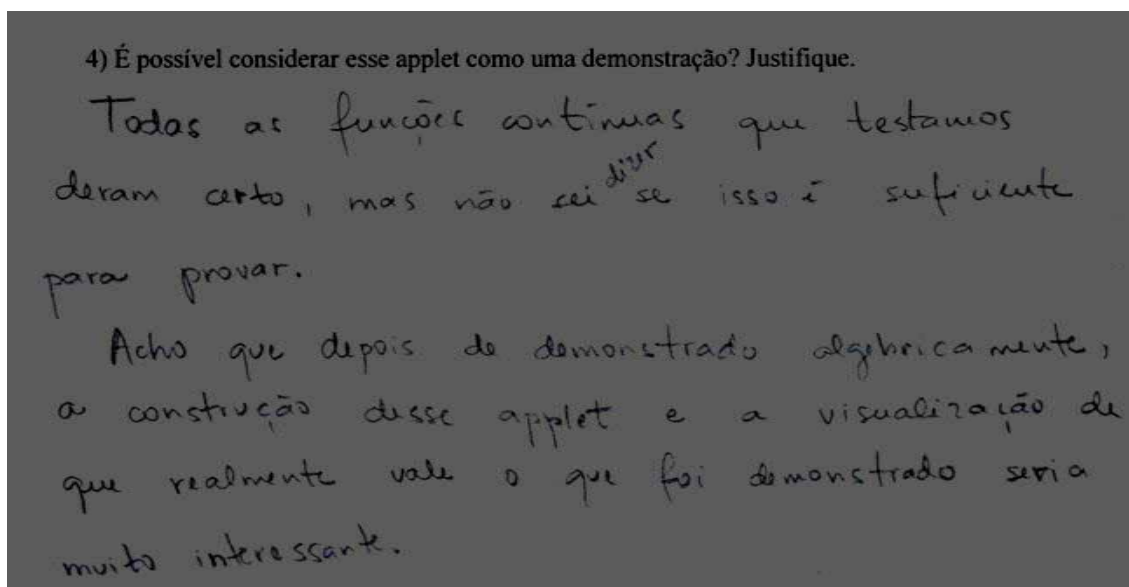 4) É possível considerar esse applet como uma demonstração? Justifique.
Todas as funções contínuas que testamos
deram certo, mas não sei dizer se isso é suficiente
para provar.
Acho que depois de demonstrado algebricamente,
a construção desse applet e a visualização de
que realmente vale o que foi demonstrado seria
muito interessante.